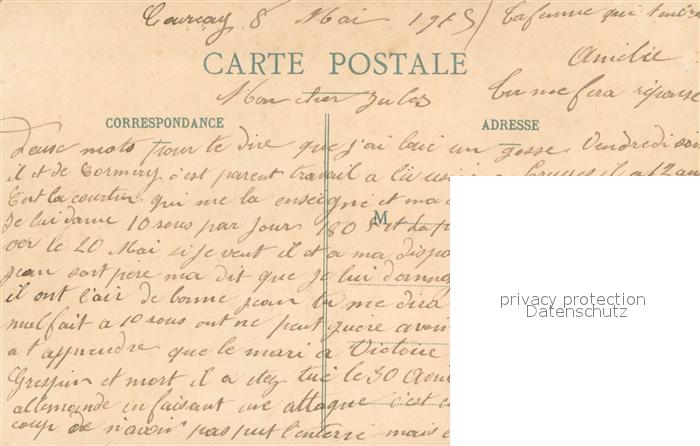 Courcay 8 Mai 1915 / ta femme qui t'entr
Amélie
CARTE POSTALE
Mon cher Jules
tu me fera réponse
CORRESPONDANCE
ADRESSE
Deux mots pour te dire que j'ai loué un gosse Vendredi soir
il et de Cormery c'est parent travail a a 12 an
C'est la courtin qui me la enseigné et ma
Je lui dame 10 sous par Jour 180 F et
M
ver le 20 Mai si je veut il et a ma dispo
Jean sont père ma dit que je lui donnas
il ont l'air de bonne jean tu me dira
mal fait a 10 sous ont ne peut guère avoir
a t'apprendre que le mari a Victoire
Grespin et mort il a etez tué le 30 Aout
allemande en faisant une attaque c'est
coup de n'avoir pas put l'enterré mais
privacy protection
Datenschutz